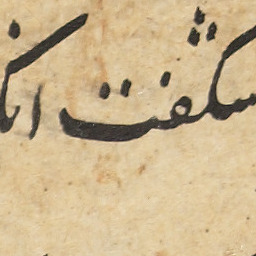 شگفت ان